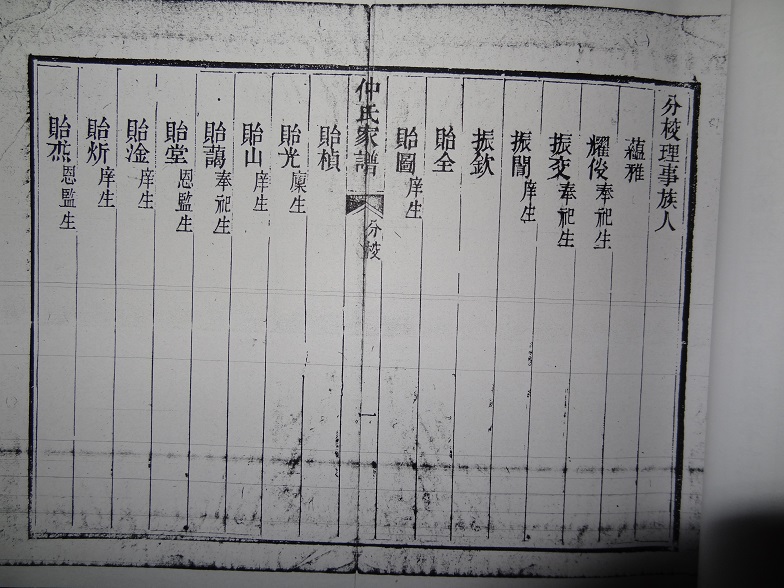 分校理事族人
蘊雅
耀俊奉祀生
振交奉祀生
振誾庠生
振欽
貽全
貽圖庠生
仲氏家譜 分校 一
貽楨
貽光廩生
貽山庠生
貽藹奉祀生
貽堂恩監生
貽淦庠生
貽炘庠生
貽杰恩監生